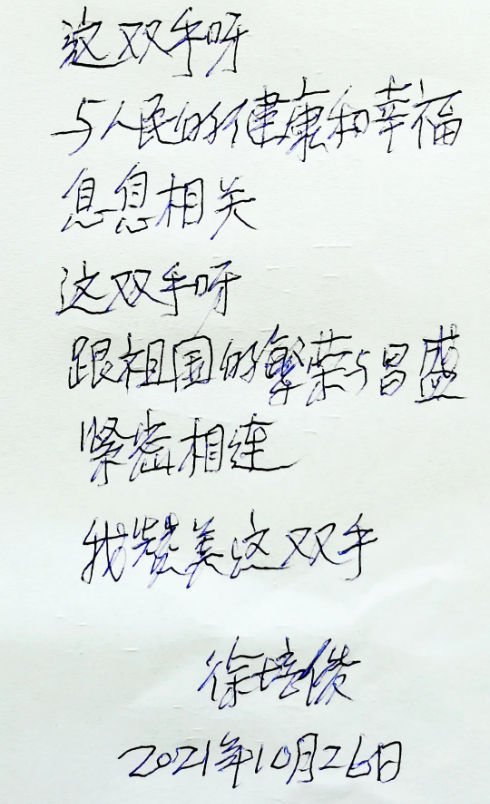 这双手呀
与人民的健康和幸福
息息相关
这双手呀
跟祖国的繁荣与昌盛
紧密相连
我赞美这双手
徐培俊
2021年10月26日